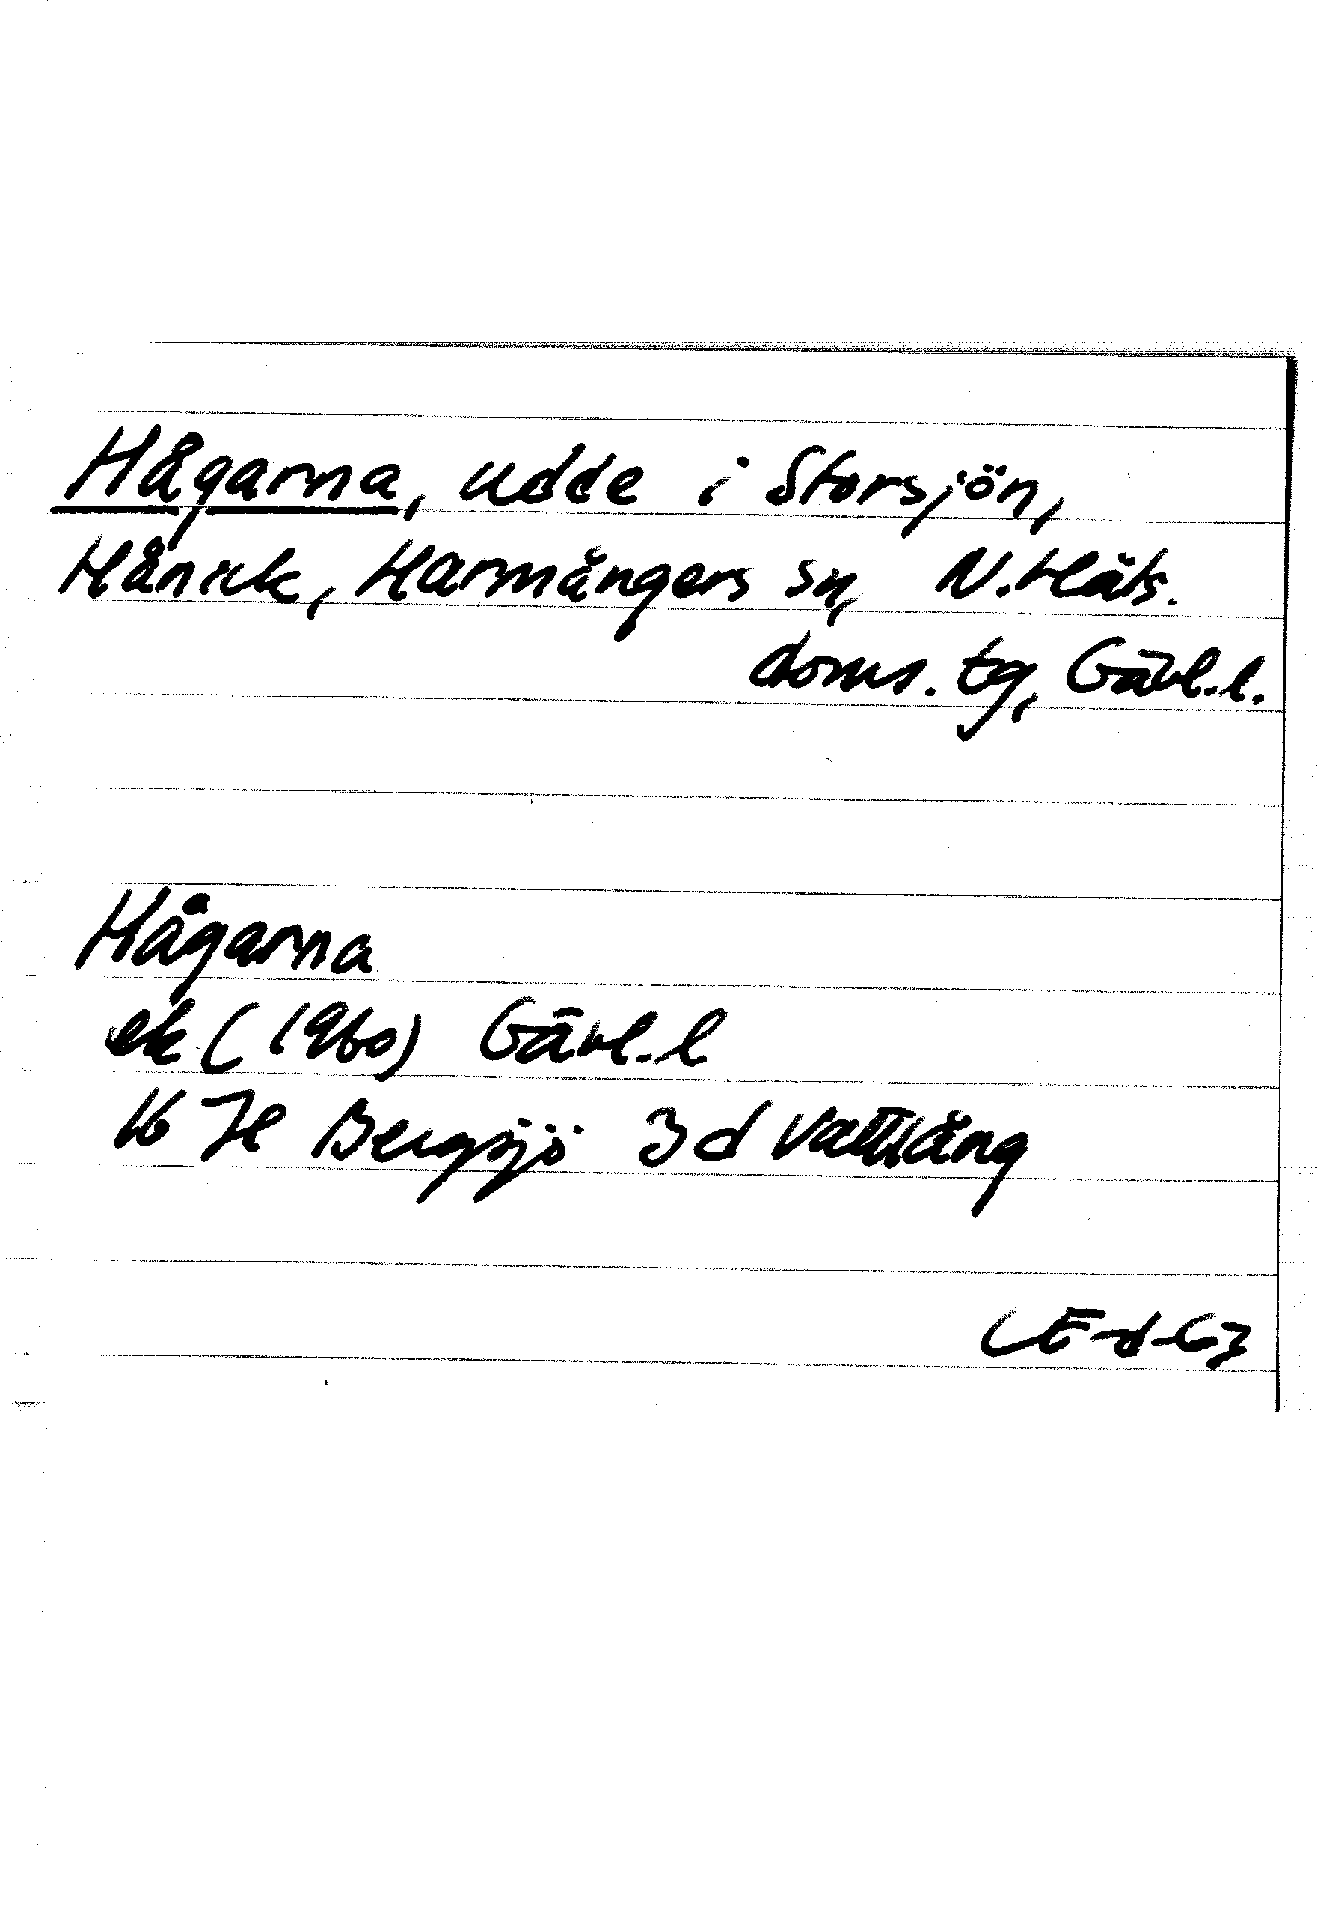 Hågarna, udde i Storsjön,
Hånick, Harmångers sn, N. Häls.
doms. tg, Gävl. l.
Hågarna
ek (1960) Gävl. l
16 H Bergsjö 3 d Vattlång
CE-d-67